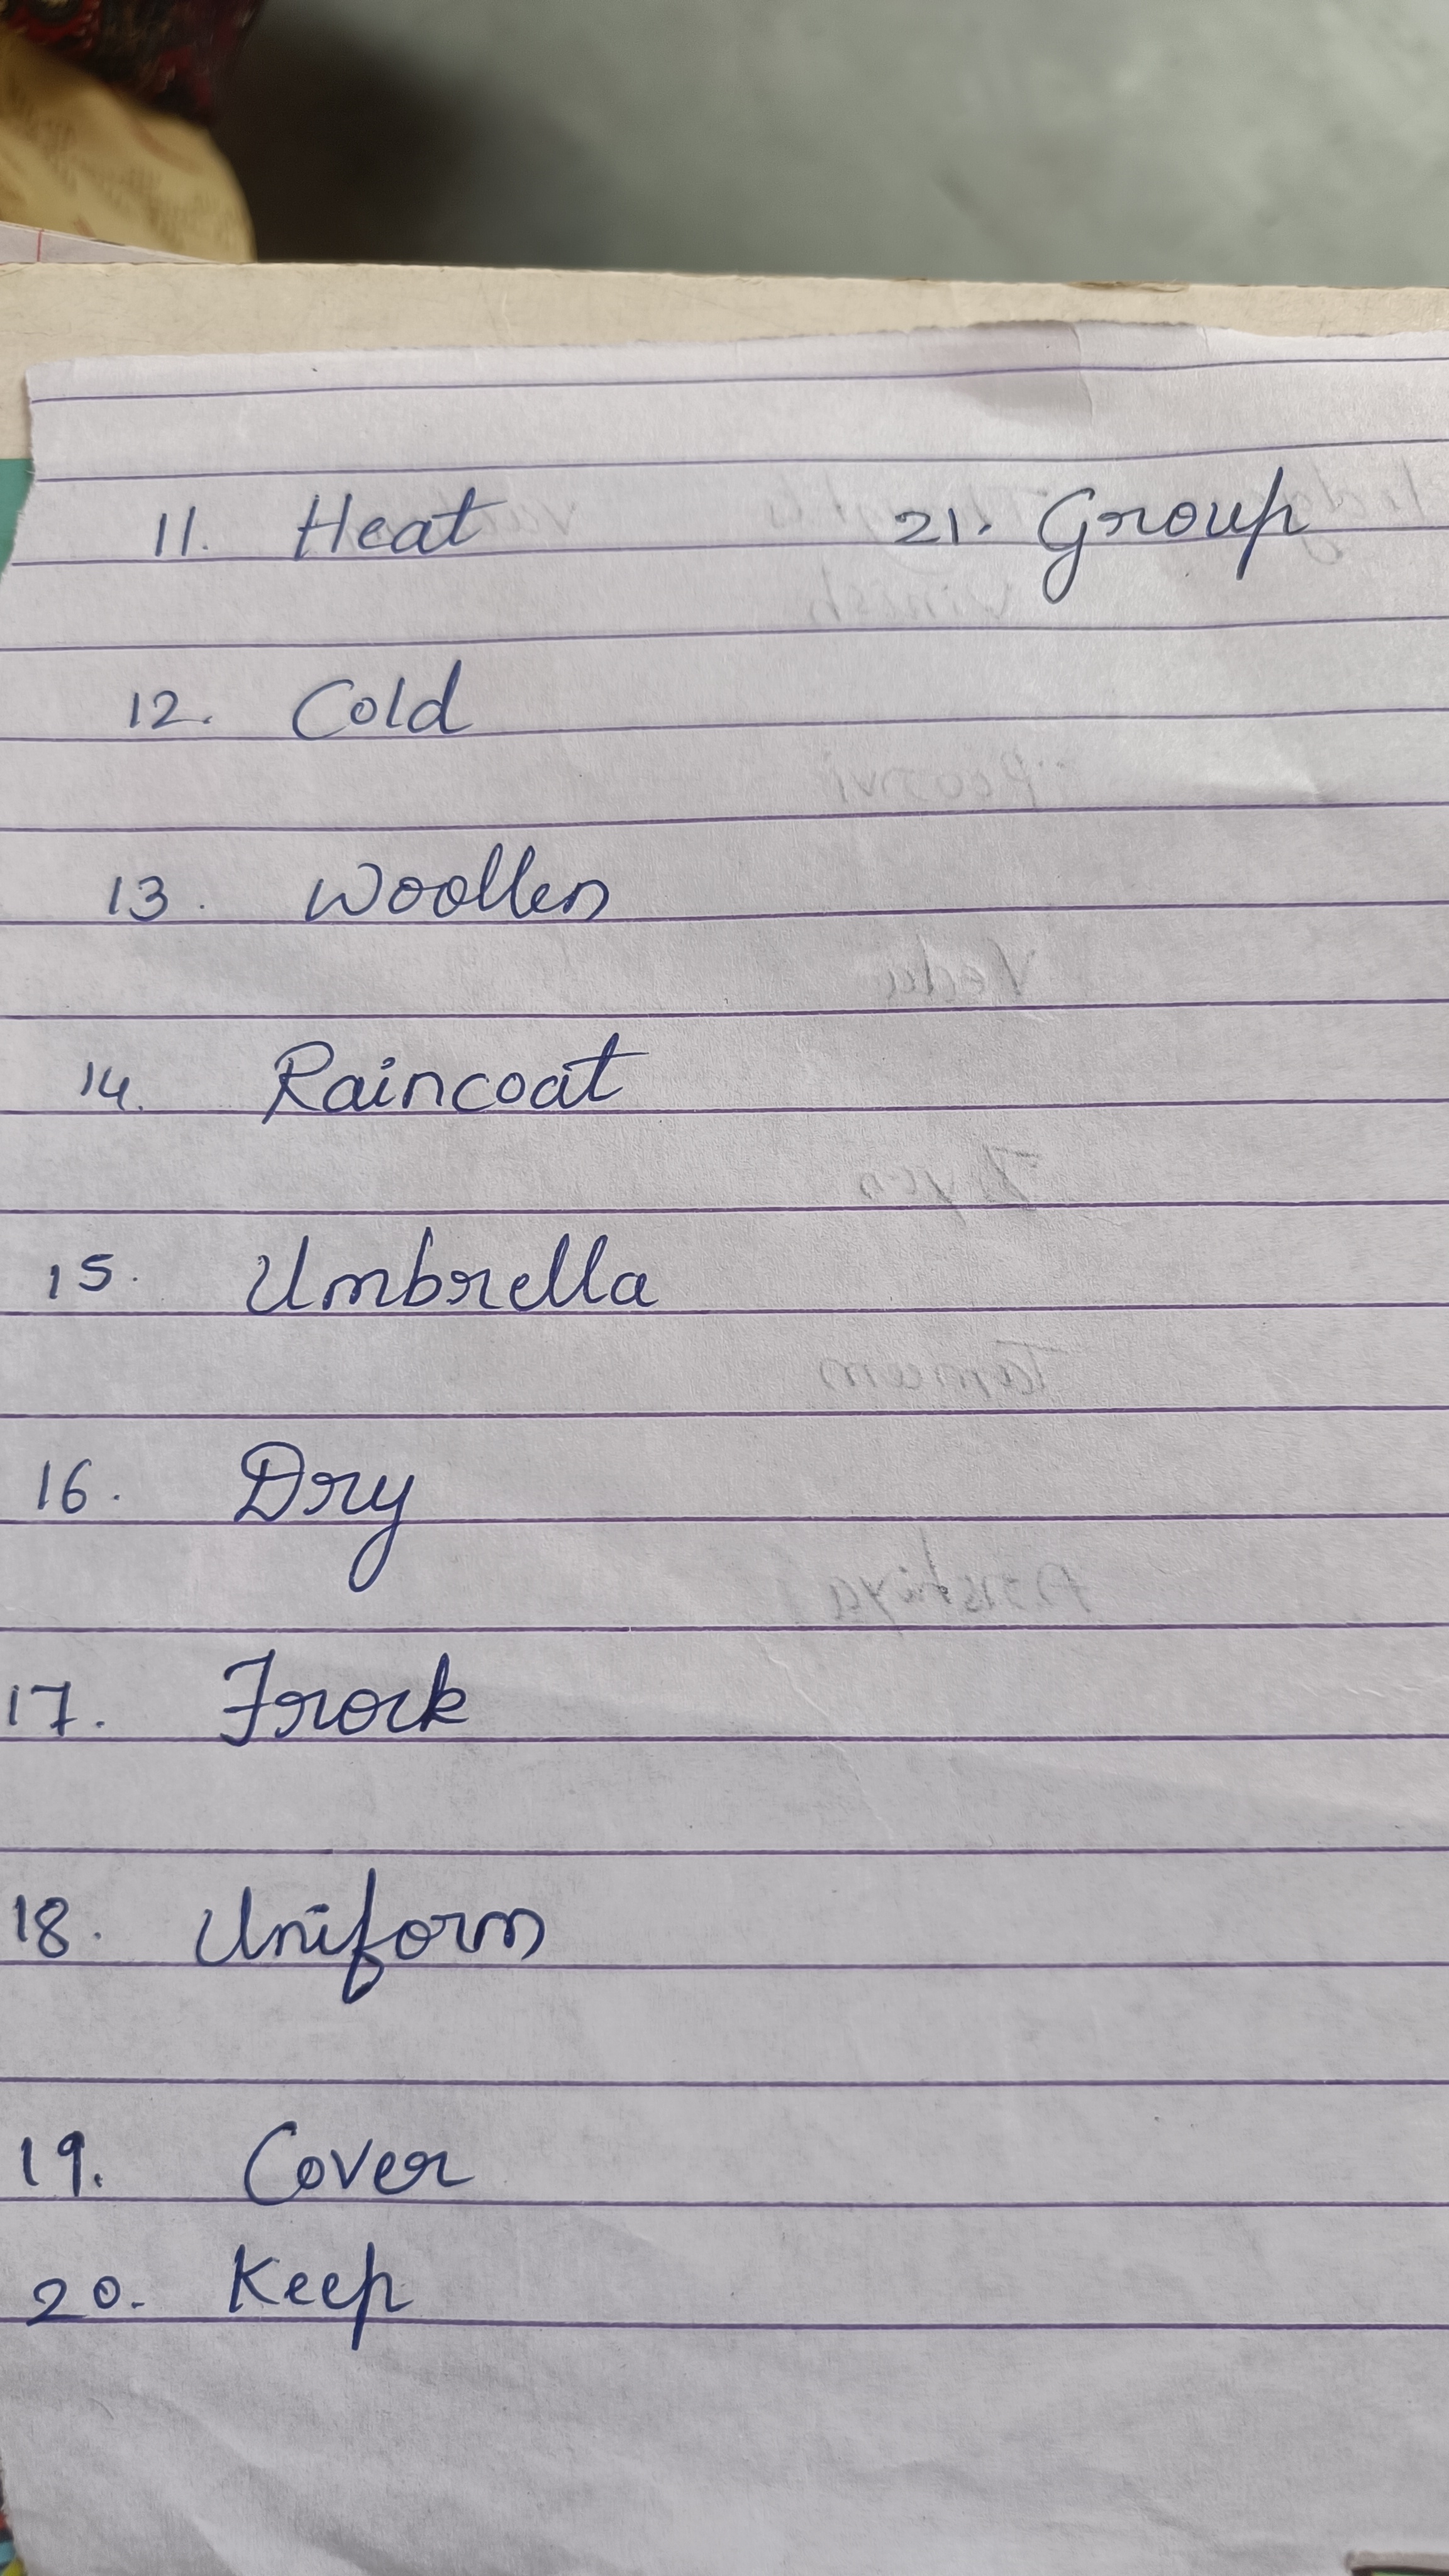 11. Heat
12. Cold
13. Woollen
14. Raincoat
15. Umbrella
16. Dry
17. Frock
18. Uniform
19. Cover
20. Keep
21. Group